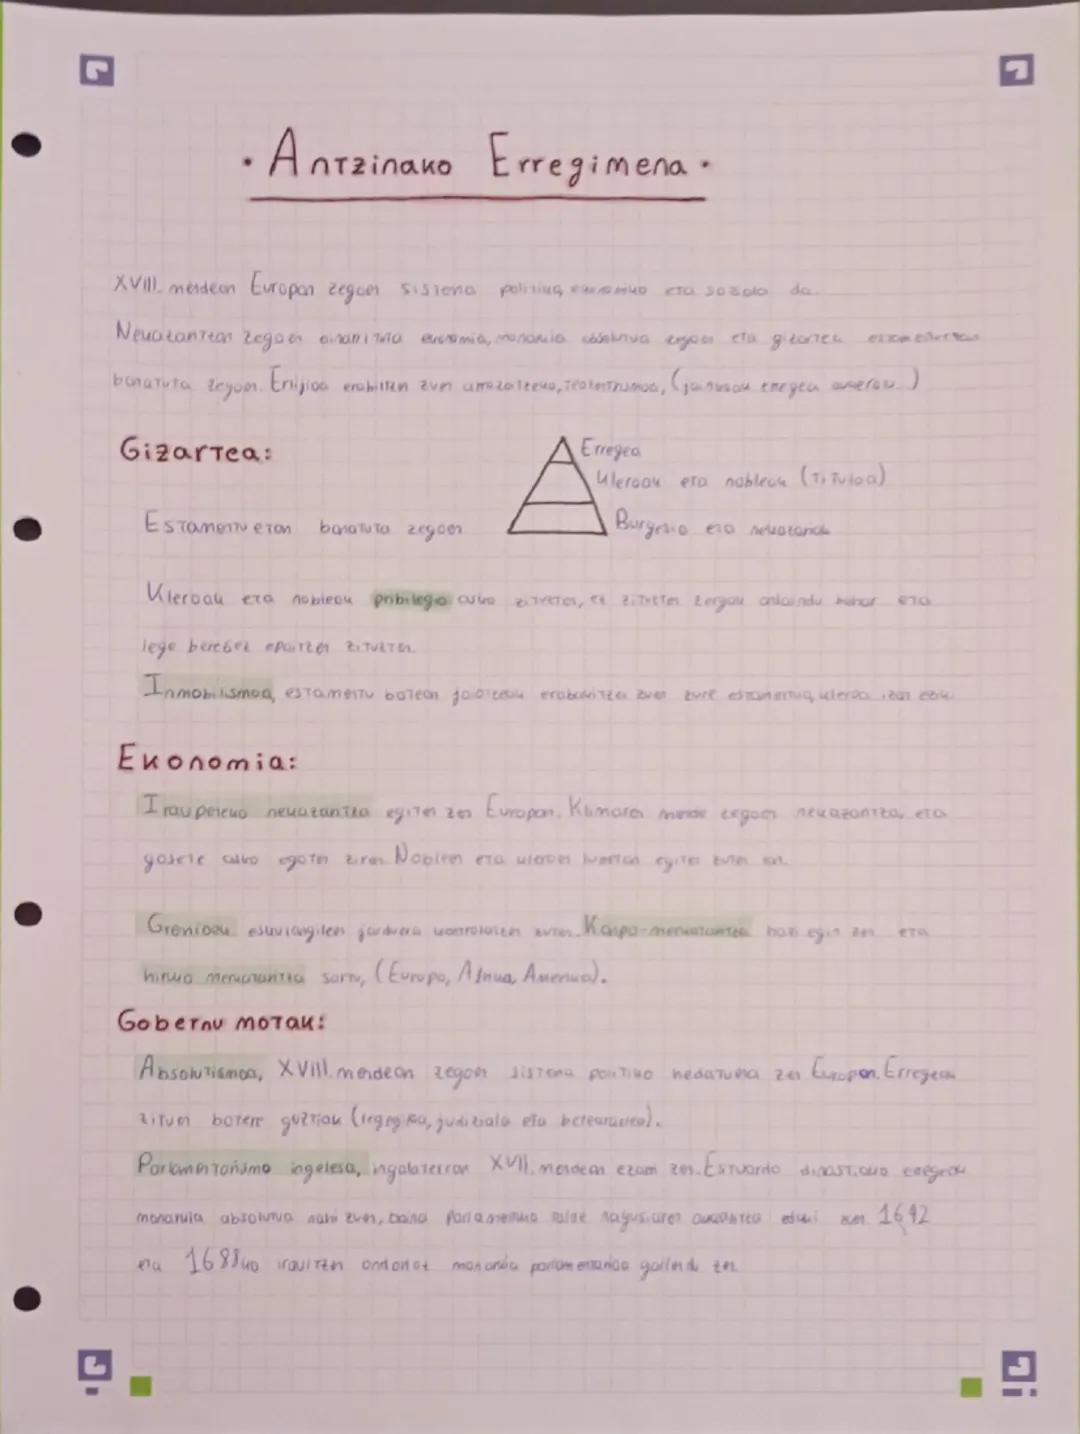 · Antzinako Erregimena ·
XVIII. mendean Europan zegoen sistema politiko, ekonomiko eta soziala da.
Nekazantzan zegoen oinarrituta ekonomia, monarkia absolutua zegoen eta gizartea estamentuetan
banatuta zegoen. Erlijioa erabiltzen zuen arrazoitzeko, teozentrismoa, (jainkoak erregea aukeratu)
Gizartea:
Erregea
kleroak eta nobleak (Tituloa)
Estamentuetan banatuta zegoen
Burgesia eta nekazariak
Kleroak eta nobleak pribilegio asko zituzten, ez zituzten zergak ordaindu behar eta
lege berezez epaitzen zituzten.
Inmobilismoa, estamentu batean jaiotzeak erabakitzen zuen zure estamentua, kleroa izan ezik.
Ekonomia:
Iraupeneko nekazantza egiten zen Europan. Klimaren mende zegoen nekazantza, eta
gosete asko egoten ziren. Noblean eta kleroen lurretan egiten zuten lan.
Gremioak eskulangileen jarduera kontrolatzen zuten. Kanpo-merkataritza hazi egin zen eta
hiruko merkataritza sortu, (Europa, Afrika, Amerika).
Gobernu motak:
Absolutismoa, XVIII. mendean zegoen sistema politiko hedatuena zen Europan. Erregeak
zituen botere guztiak (legegilea, judiziala eta betearazlea).
Parlamentarismo ingelesa, ingalaterran XVII. mendean ezarri zen. Estuardo dinastiako erregeak
monarkia absolutua nahi zuen, baina Parlamentuko talde nagusiaren aurkaritza eduki zuen. 1642
eta 1688ko iraultzen ondoriot monarkia parlamentarioa gailendu zen.